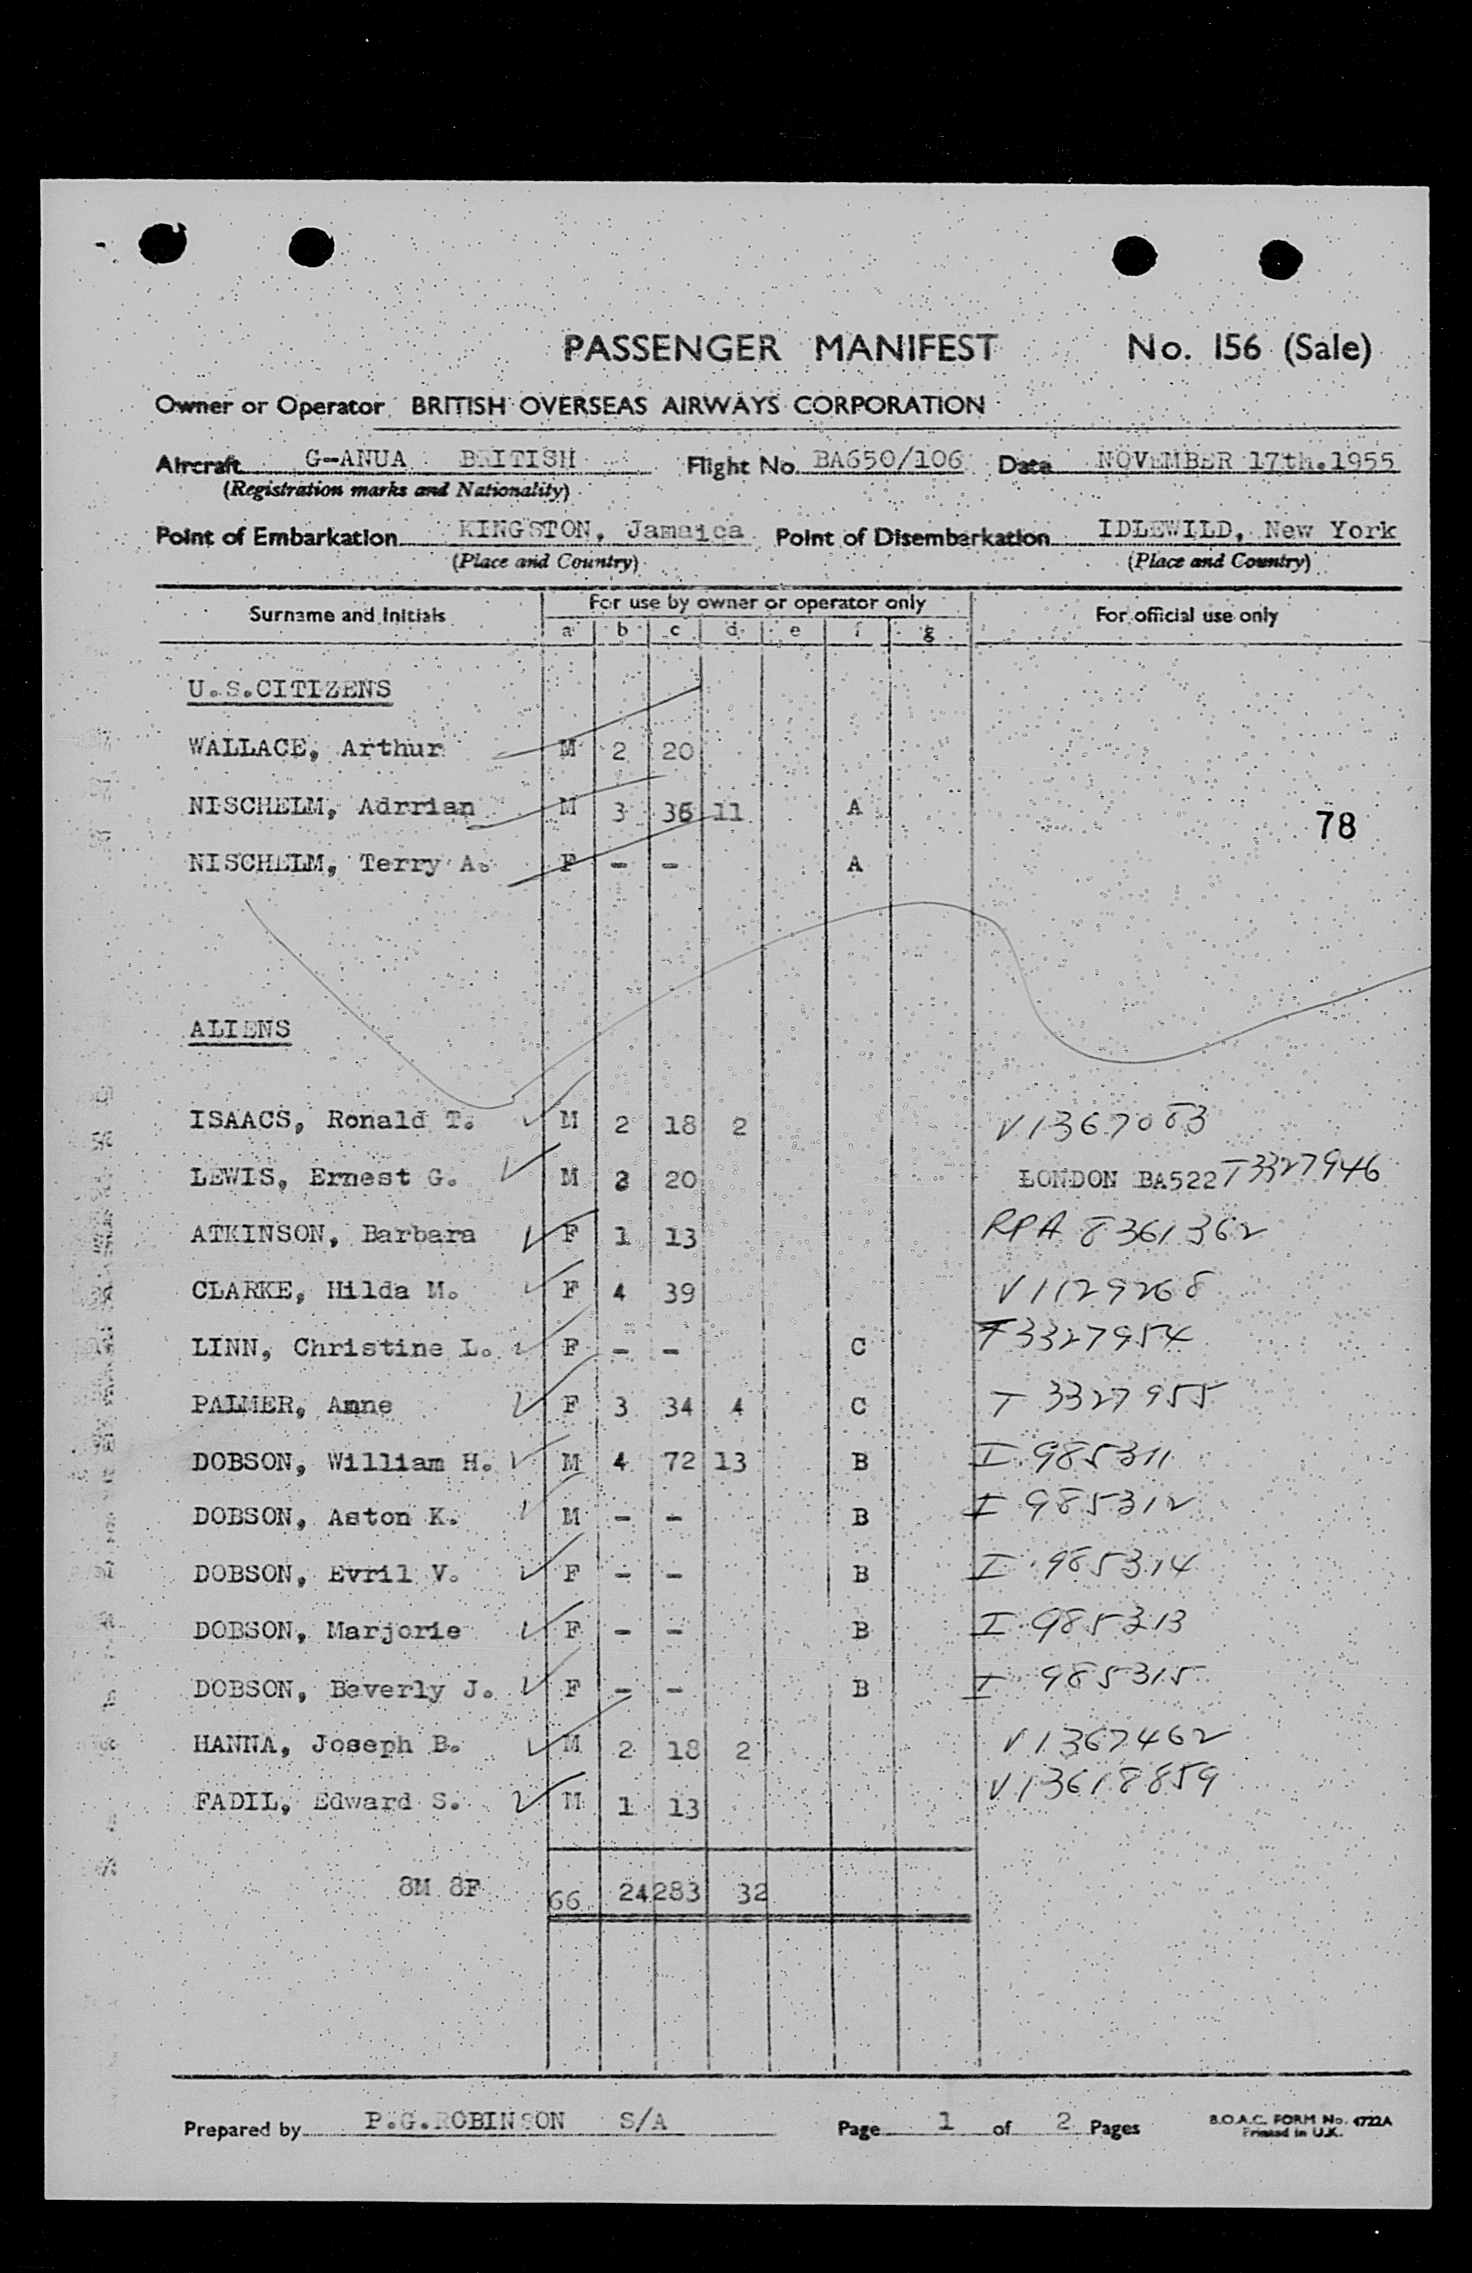 PASSENGER MANIFEST No. 156 (Sale)
Owner or Operator BRITISH OVERSEAS AIRWAYS CORPORATION
Aircraft G-ANUA BRITISH Flight No. BA650/106 Date NOVEMBER 17th.1955
(Registration marks and Nationality)
Point of Embarkation KINGSTON, Jamaica Point of Disembarkation IDLEWILD, New York
(Place and Country) (Place and Country)
Surname and Initials For use by owner or operator only For official use only
a b c d e f g
U.S.CITIZENS
WALLACE, Arthur M 2 20
NISCHELM, Adrrian M 3 36 11 A
78
NISCHELM, Terry A. F - - A
ALIENS
ISAACS, Ronald T. M 2 18 2 V1367083
LEWIS, Ernest G. M 2 20 LONDON BA522 T3327946
ATKINSON, Barbara F 1 13 RPA 8361362
CLARKE, Hilda M. F 4 39 V1129268
LINN, Christine L. F - - C T3327954
PALMER, Anne F 3 34 4 C T 3327955
DOBSON, William H. M 4 72 13 B I 985311
DOBSON, Aston K. M - - B I 985312
DOBSON, Evril V. F - - B I 985314
DOBSON, Marjorie F - - B I 985313
DOBSON, Beverly J. F - - B I 985315
HANNA, Joseph B. M 2 18 2 V1367462
FADIL, Edward S. M 1 13 V13618859
8M 8F 66 24 283 32
Prepared by P.G.ROBINSON S/A Page 1 of 2 Pages B.O.A.C. FORM No. 4722A
Printed in U.K.